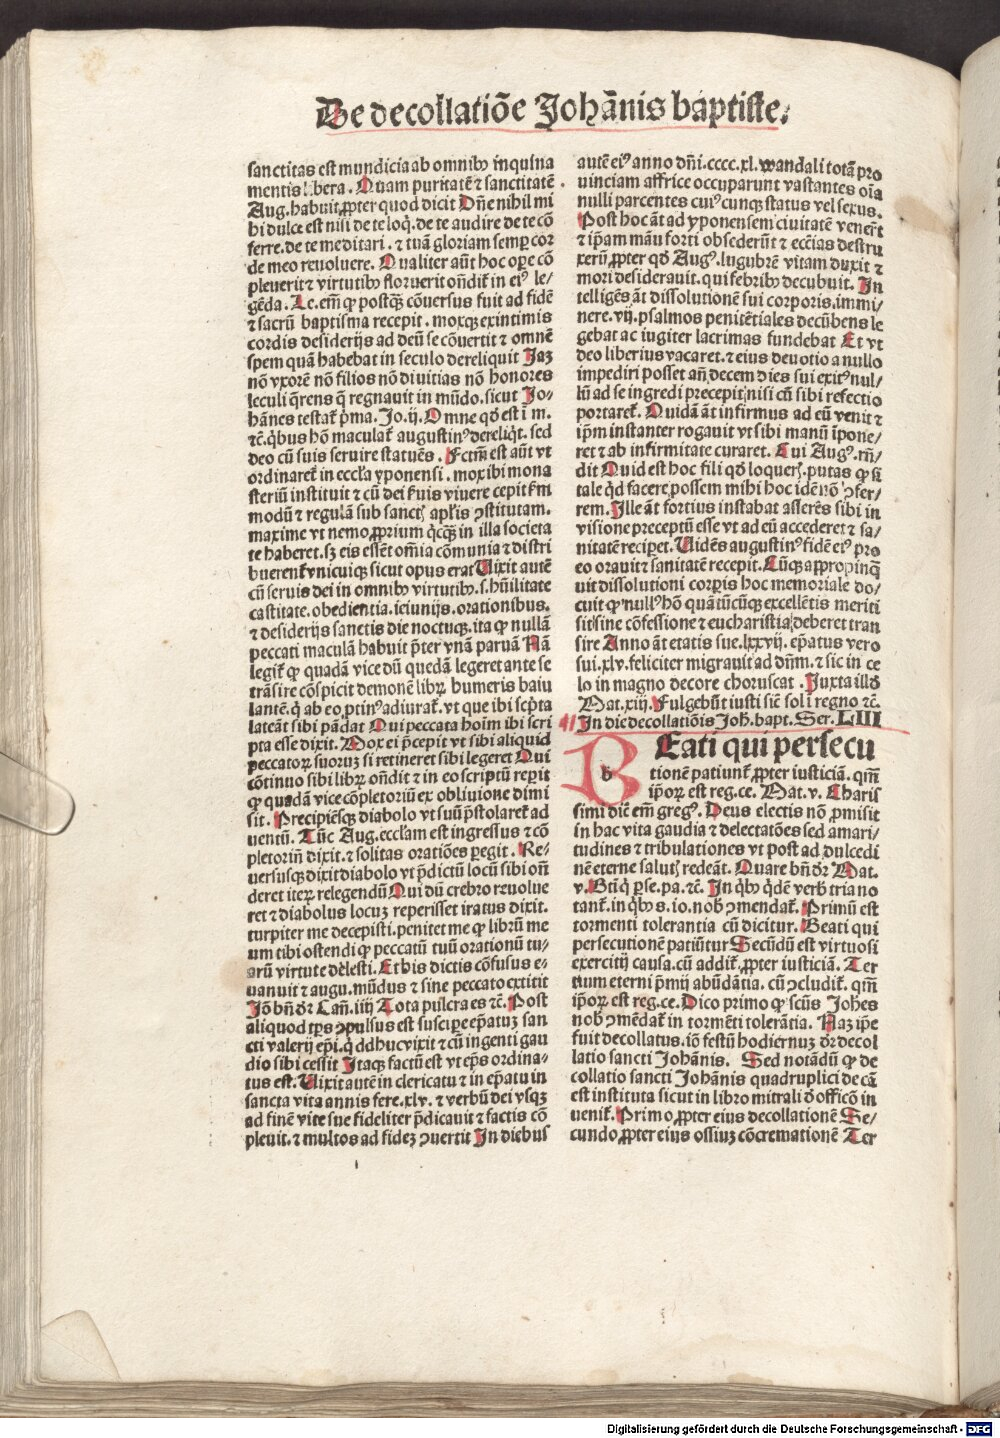 De decollatiōe Johānis baptiste.
sanctitas est mundicia ab omnibꝰ inquina
mentis libera. Quam puritatē ⁊ sanctitatē
Aug. habuit ꝓpter quod dicit Dñe nihil mi
hi dulce est nisi de te loqͥ. de te audire de te cō
ferre. de te meditari. ⁊ tuā gloriam semꝑ cor
de meo reuoluere. Qualiter aūt hoc oꝑe cō
pleuerit ⁊ virtutibꝰ floruerit oñdit̄ in eiꝰ le⸗
gēda. Le. em̄ ꝙ postqꝫ cōuersus fuit ad fidē
⁊ sacrū baptisma recepit. moxqꝫ ex intimis
cordis desiderijs ad deū se cōuertit ⁊ omnē
spem quā habebat in seculo dereliquit Jaꝫ
nō vxorē nō filios nō diuitias nō honores
seculi q̄rens q̄ regnauit in mūdo. sicut Jo⸗
hānes testat̄ p̄ma. Jo. ij. Omne qd̄ est ī m.
⁊c̄. qͥbus hō maculat̄ augustinꝰ dereliqͥt. sed
deo cū suis seruire statuēs. Fctm̄ est aūt vt
ordinaret̄ in eccl̄a yponensi. mox ibi mona
steriū instituit ⁊ cū dei ſ̄uis viuere cepit ẜm
modū ⁊ regulā sub sanctꝭ apl̄is ꝯstitutam.
maxime vt nemo ꝓprium qͥcqꝫ in illa societa
te haberet. sꝫ eis essēt om̄ia cōmunia ⁊ distri
buerent̄ vnicuiqꝫ sicut opus erat Vixit autē
cū seruis dei in omnibꝰ virtutibꝰ. s. hūilitate
castitate. obedientia. ieiunijs. orationibus.
⁊ desiderijs sanctis die noctuqꝫ. ita ꝙ nullā
peccati maculā habuit p̄ter vnā paruā Nā
legit̄ ꝙ quadā vice dū quedā legeret ante se
trāsire cōspicit demonē librꝫ humeris baiu
lantē. qͥ ab eo ꝓtinꝰ adiurat̄. vt que ibi sc̄pta
lateāt sibi pādat Qui peccata hoīm ibi scri
pta esse dixit. Mox ei p̄cepit vt sibi aliquid
peccatorꝫ suoruꝫ si retineret sibi legeret Qui
cōtinuo sibi librꝫ oñdit ⁊ in eo scriptū reꝑit
ꝙ quadā vice cōpletoriū ex obliuione dimi
sit. Precipiēsqꝫ diabolo vt suū p̄stolaret̄ ad
uentū. Tūc Aug. eccl̄am est ingressus ⁊ cō
pletoriū dixit. ⁊ solitas oratiōes ꝑegit. Re⸗
uersusqꝫ dixit diabolo vt p̄dictū locū sibi oñ
deret iterꝫ relegendū Qui dū crebro reuolue
ret ⁊ diabolus locuꝫ reperisset iratus dixit.
turpiter me decepisti. penitet me ꝙ librū me
um tibi ostendi ꝙ peccatū tuū orationū tu⸗
arū virtute delesti. Et his dictis cōfusus e⸗
uanuit ⁊ augu. mūdus ⁊ sine peccato extitit
Jō bn̄ dr̄ Can̄. iiij Tota pulcra es ⁊c̄. Post
aliquod tp̄s ꝯpulsus est suscipe ep̄atuꝫ san
cti valerij ep̄i. qͥ adhuc vixit ⁊ cū ingenti gau
dio sibi cessit Jtaqꝫ factū est vt ep̄s ordina⸗
tus est. Vixit autē in clericatu ⁊ in ep̄atu in
sancta vita annis fere. xlv. ⁊ verbū dei vsqꝫ
ad finē vite sue fideliter p̄dicauit ⁊ factis cō
pleuit. ⁊ multos ad fideꝫ ꝯuertit Jn diebus
autē eiꝰ anno dn̄i. cccc. xl. wandali totā pro
uinciam affrice occuparunt vastantes oīa
nulli parcentes cuiꝰcunqꝫ status vel sexus.
Post hoc āt ad yponensem ciuitatē venerūt
⁊ ip̄am māu forti obsederūt ⁊ ecc̄ias destru
xerū ꝓpter qd̄ Augꝰ. lugubrē vitam duxit ⁊
mori desiderauit. qui febribꝰ decubuit. Jn
telligēs āt dissolutionē sui corporis. immi⸗
nere. vij. psalmos penitētiales decūbens le
gebat ac iugiter lacrimas fundebat Et vt
deo liberius vacaret. ⁊ eius deuotio a nullo
impediri posset an̄ decem dies sui exitꝰ nul⸗
lū ad se ingredi precepit nisi cū sibi refectio
portaret̄. Quidā āt infirmus ad eū venit ⁊
ip̄m instanter rogauit vt sibi manū īpone⸗
ret ⁊ ab infirmitate curaret. Cui Augꝰ. rn̄⸗
dit Quid est hoc fili qd̄ loquerꝭ. putas ꝙ si
tale qͥd facere possem mihi hoc idē nō ꝯfer⸗
rem. Jlle āt fortius instabat asserēs sibi in
visione preceptū esse vt ad eū accederet ⁊ sa⸗
nitatē reciꝑet. Uidēs augustinꝰ fidē eiꝰ pro
eo orauit ⁊ sanitatē recepit. Cūqꝫ appropinq̄
uit dissolutioni corꝑis hoc memoriale do⸗
cuit ꝙ nullꝰ hō quātūcūqꝫ excellētis meriti
sit sine cōfessione ⁊ eucharistia deberet tran
sire Anno āt etatis sue. lxxvij. ep̄atus vero
sui. xlv. feliciter migrauit ad dn̄m. ⁊ sic in ce
lo in magno decore choruscat. Juxta illd̄
Mat. xiij. Fulgebūt iusti sic̄ sol ī regno ⁊c̄.
¶ Jn die decollatiōis Joh. bapt. Ser. LIII
Beati qui persecu
tionē patiunt̄ ꝓpter iusticiā. qm̄
ip̄oꝝ est reg. ce. Mat. v. Charis
simi dic̄ em̄ gregꝰ. Deus electis nō ꝓmisit
in hac vita gaudia ⁊ delectatōes sed amari⸗
tudines ⁊ tribulationes vt post ad dulcedi
nē eterne salutꝭ redeāt. Quare bn̄ dr̄ Mat.
v. Bti qͥ ꝑse. pa. ⁊c̄. Jn qͥbꝰ qͥdē verbꝭ tria no
tant̄. in qͥbꝰ s. io. nobꝭ ꝯmendat̄. Primū est
tormenti tolerantia cū dicitur. Beati qui
persecutionē patiūtur Secūdū est virtuosi
exercitij causa. cū addit̄ ꝓpter iusticiā. Ter
tium eterni p̄mij abūdātia. cū ꝯcludit̄. qm̄
ip̄oꝝ est reg. ce. Dico primo ꝙ scūs Johēs
nobꝭ ꝯmēdat̄ in tormēti tolerātia. Naꝫ ip̄e
fuit decollatus. iō festū hodiernuꝫ dr̄ decol
latio sancti Johānis. Sed notādū ꝙ de
collatio sancti Johānis quadruplici de cā
est instituta sicut in libro mitrali d̄ officō in
uenit̄. Primo ꝓpter eius decollationē Se⸗
cundo ꝓpter eius ossiuꝫ cōcremationē Ter
Digitalisierung gefördert durch die Deutsche Forschungsgemeinschaft - DFG